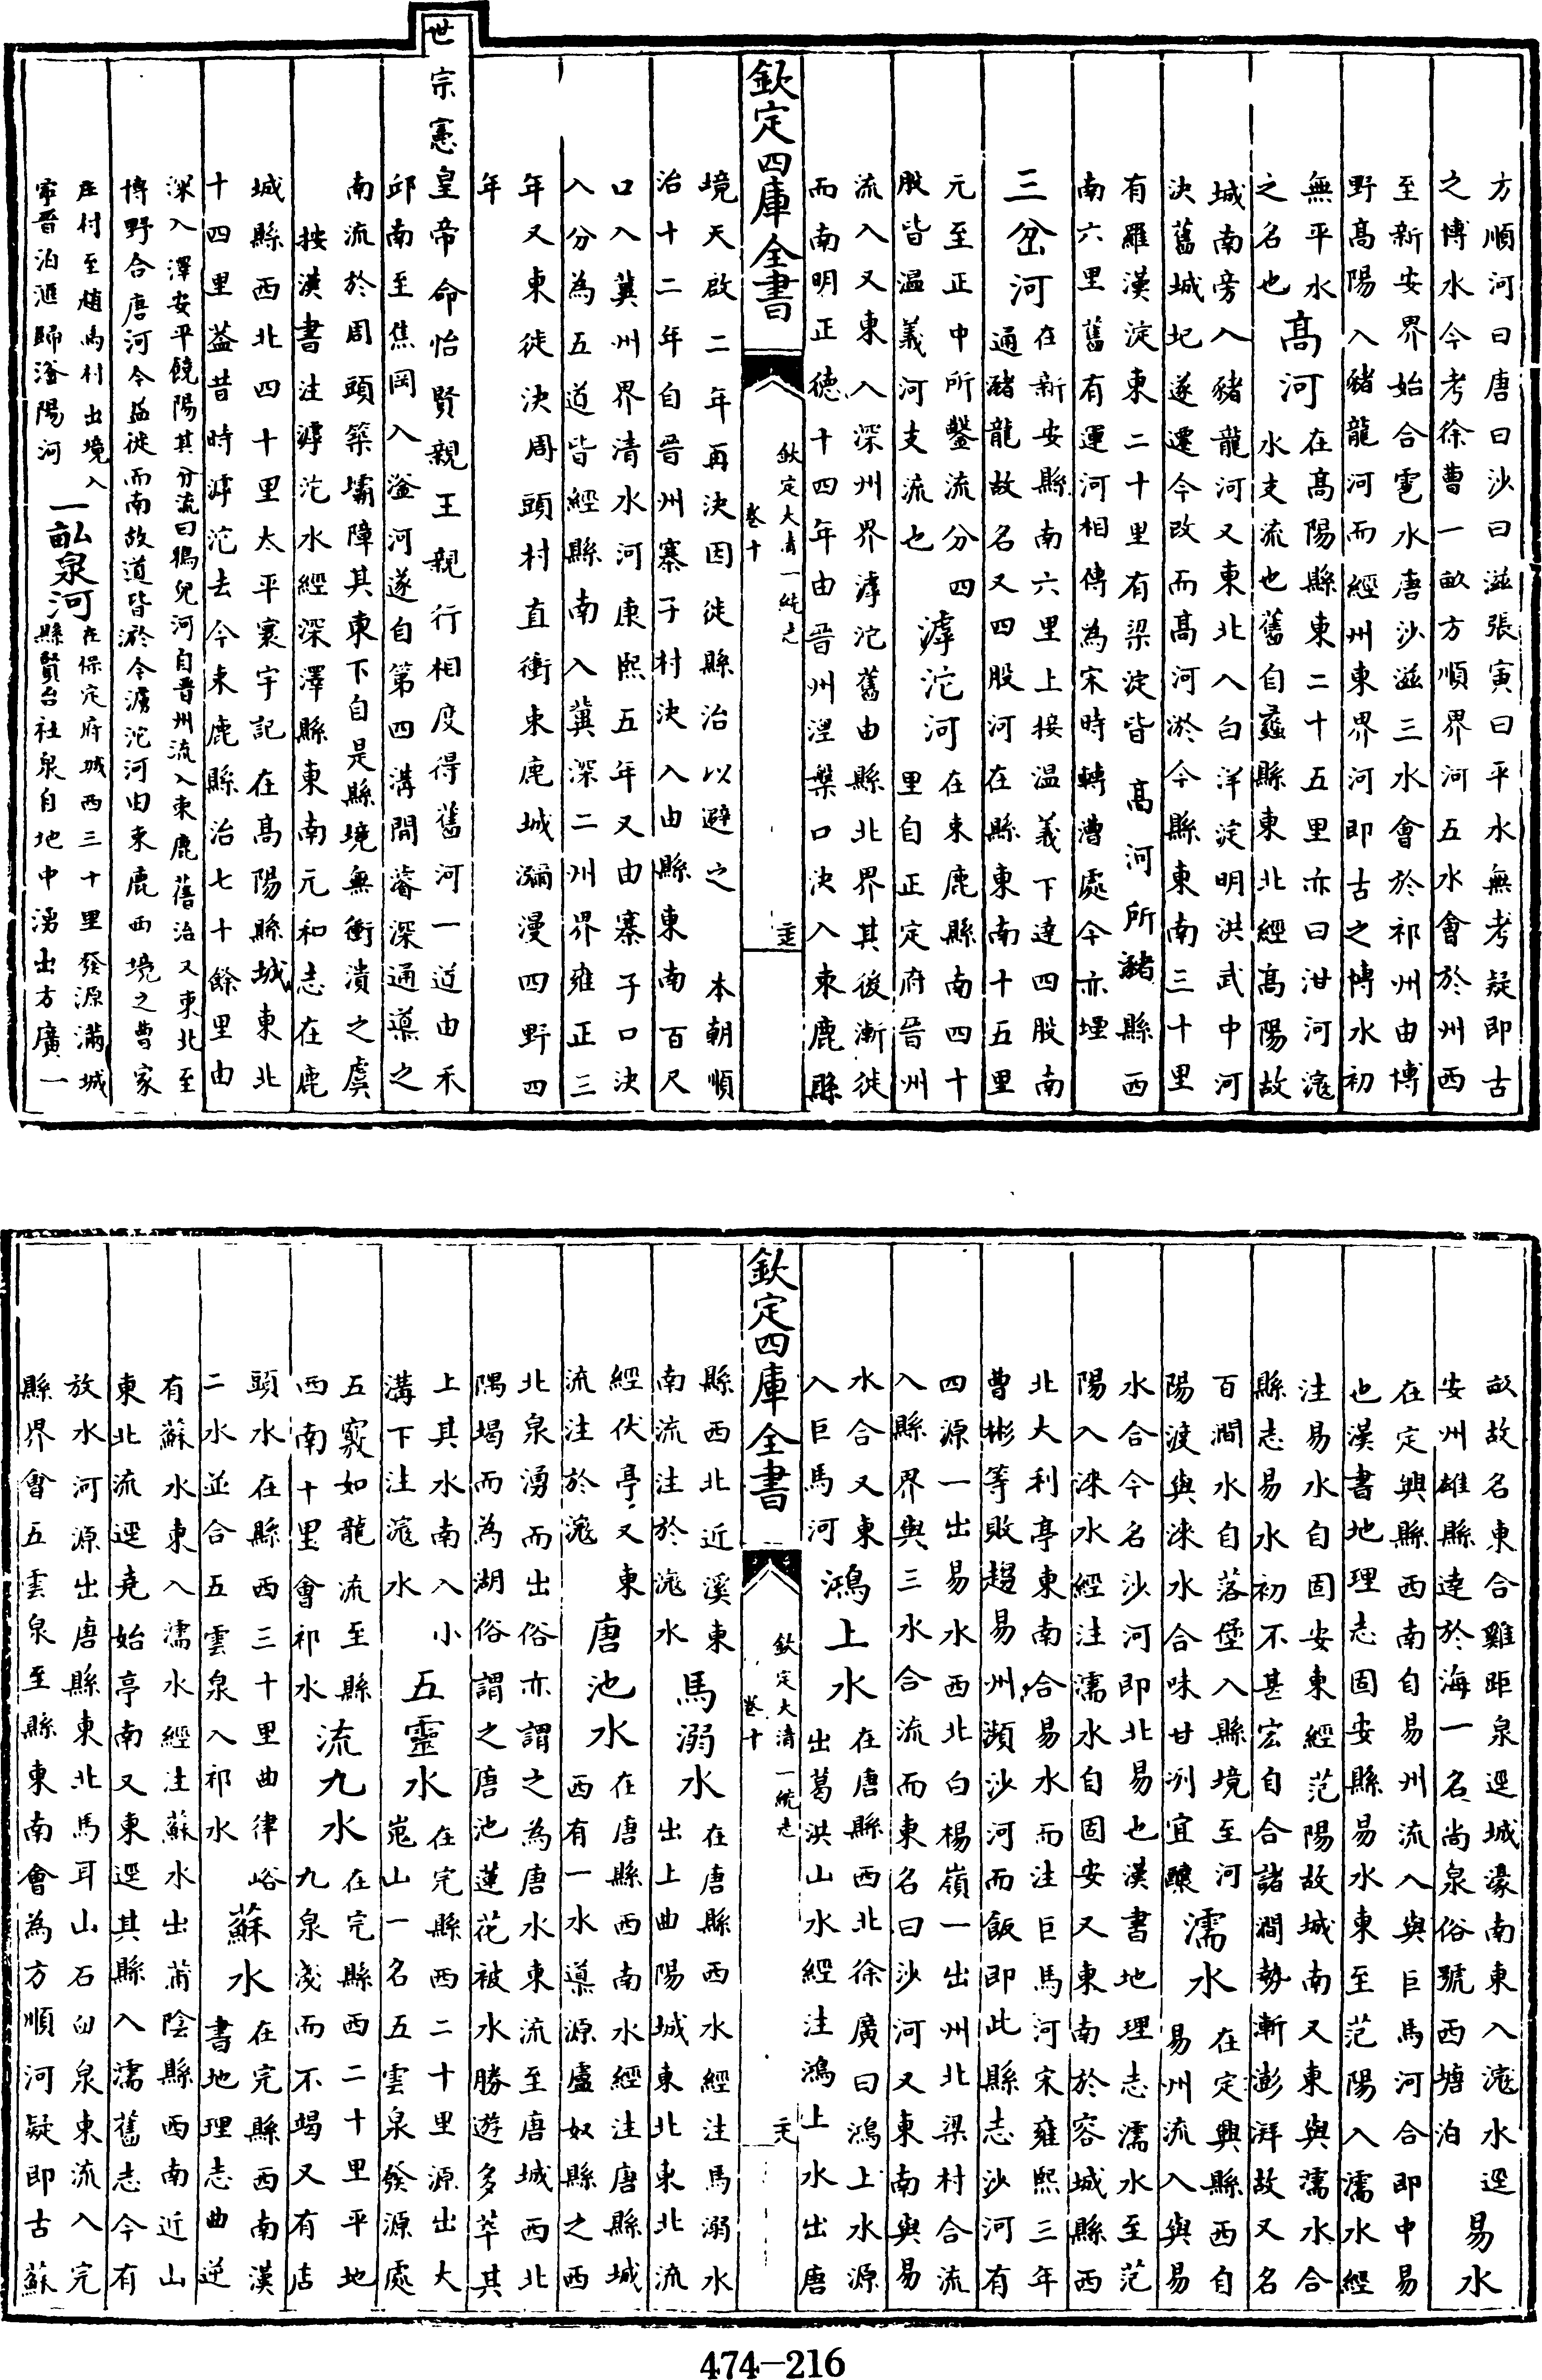 方順河曰唐曰沙曰滋張寅曰平水無考疑即古
之博水今考徐曹一畝方順界河五水會於州西
至新安界始合雹水唐沙滋三水會於祁州由博
野高陽入豬龍河而經州東界河即古之博水初
無平水
之名也
高河
在高陽縣東二十五里亦曰泔河滱
水支流也舊自蠡縣東北經高陽故
城南旁入豬龍河又東北入白洋淀明洪武中河
決舊城圮遂遷今改而高河淤今縣東南三十里
有羅漢淀東二十里有梁淀皆高河所瀦縣西
南六里舊有運河相傳為宋時轉漕處今亦堙
三岔河
在新安縣南六里上接温義下達四股南
通豬龍故名又四股河在縣東南十五里
元至正中所鑿流分四
股皆温義河支流也
滹沱河
在束鹿縣南四十
里自正定府晉州
流入又東入深州界滹沱舊由縣北界其後漸徙
而南明正徳十四年由晉州涅槃口決入束鹿縣
欽定四庫全書
欽定大清一統志
卷十
境天啟二年再決因徙縣治以避之 本朝順
治十二年自晉州寨子村決入由縣東南百尺
口入冀州界清水河康熙五年又由寨子口決
入分為五道皆經縣南入冀深二州界雍正三
年又東徙決周頭村直衝束鹿城瀰漫四野四
年
世宗憲皇帝命怡賢親王親行相度得舊河一道由禾
邱南至焦岡入滏河遂自第四溝間濬深通導之
南流於周頭築壩障其東下自是縣境無衝潰之虞
按漢書注滹沱水經深澤縣東南元和志在鹿
城縣西北四十里太平寰宇記在高陽縣城東北
十四里蓋昔時滹沱去今束鹿縣治七十餘里由
深入澤安平饒陽其分流曰鴉兒河自晉州流入束鹿舊治又東北至
博野合唐河今益徙而南故道皆淤今滹沱河由束鹿西境之曹家
庄村至趙馬村出境入
寧晋泊滙歸滏陽河
一畝泉河
在保定府城西三十里發源滿城
縣賢台社泉自地中湧出方廣一
畝故名東合雞距泉逕城濠南東入滱水逕
安州雄縣達於海一名尚泉俗號西塘泊
易水
在定興縣西南自易州流入與巨馬河合即中易
也漢書地理志固安縣易水東至范陽入濡水經
注易水自固安東經范陽故城南又東與濡水合
縣志易水初不甚宏自合諸澗勢漸澎湃故又名
百澗水自落堡入縣境至河
陽渡與淶水合味甘冽宜釀
濡水
在定興縣西自
易州流入與易
水合今名沙河即北易也漢書地理志濡水至范
陽入淶水經注濡水自固安又東南於容城縣西
北大利亭東南合易水而注巨馬河宋雍熙三年
曹彬等敗趨易州瀕沙河而飯即此縣志沙河有
四源一出易水西北白楊嶺一出州北梁村合流
入縣界與三水合流而東名曰沙河又東南與易
水合又東
入巨馬河
鴻上水
在唐縣西北徐廣曰鴻上水源
出葛洪山水經注鴻上水出唐
欽定四庫全書
欽定大清一統志
卷十
縣西北近溪東
南流注於滱水
馬溺水
在唐縣西水經注馬溺水
出上曲陽城東北東北流
經伏亭又東
流注於滱
唐池水
在唐縣西南水經注唐縣城
西有一水導源盧奴縣之西
北泉湧而出俗亦謂之為唐水東流至唐城西北
隅堨而為湖俗謂之唐池蓮花被水勝遊多萃其
上其水南入小
溝下注滱水
五靈水
在完縣西二十里源出大
嵬山一名五雲泉發源處
五竅如龍流至縣
西南十里會祁水
流九水
在完縣西二十里平地
九泉淺而不竭又有店
頭水在縣西三十里曲律峪
二水並合五雲泉入祁水
蘇水
在完縣西南漢
書地理志曲逆
有蘇水東入濡水經注蘇水出蒲陰縣西南近山
東北流逕堯始亭南又東逕其縣入濡舊志今有
放水河源出唐縣東北馬耳山石臼泉東流入完
縣界會五雲泉至縣東南會為方順河疑即古蘇
474-216